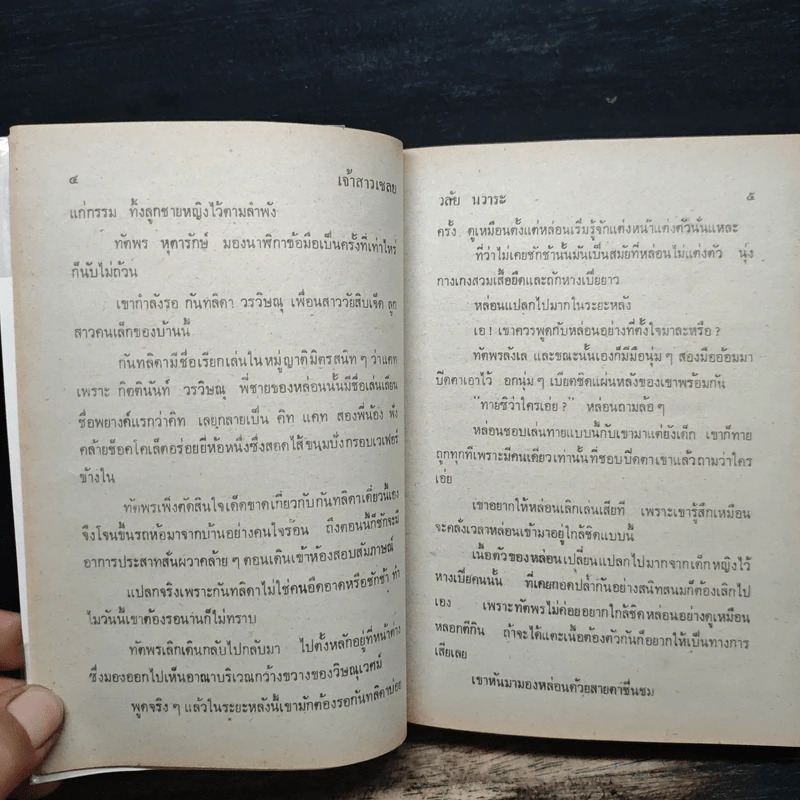 ๔ เจ้าสาวเชลย
แก่กรรม ทิ้งลูกชายหญิงไว้ตามลำพัง
ทัดพร หุตารักษ์ มองนาฬิกาข้อมือเป็นครั้งที่เท่าไหร่
ก็นับไม่ถ้วน
เขากำลังรอ กันทลิดา วรวิษณุ เพื่อนสาววัยสิบเจ็ด ลูก
สาวคนเล็กของบ้านนี้
กันทลิดามีชื่อเรียกเล่นในหมู่ญาติมิตรสนิท ๆ ว่าแคท
เพราะ กิตตินันท์ วรวิษณุ พี่ชายของหล่อนนั้นมีชื่อเล่นเลียน
ชื่อพยางค์แรกว่าคิท เลยกลายเป็น คิท แคท สองพี่น้อง ฟัง
คล้ายช็อคโคเล็ตอร่อยยี่ห้อหนึ่งซึ่งสอดไส้ขนมปังกรอบเวเฟอร์
ข้างใน
ทัดพรเพิ่งตัดสินใจเด็ดขาดเกี่ยวกับกันทลิดาเดี๋ยวนี้เอง
จึงโจนขึ้นรถห้อมาจากบ้านอย่างคนใจร้อน ถึงตอนนี้ก็ชักจะมี
อาการประสาทสั่นผวาคล้าย ๆ ตอนเดินเข้าห้องสอบสัมภาษณ์
แปลกจริงเพราะกันทลิดาไม่ใช่คนอืดอาดหรือชักช้า ทำ
ไมวันนี้เขาต้องรอนานก็ไม่ทราบ
ทัดพรเลิกเดินกลับไปกลับมา ไปตั้งหลักอยู่ที่หน้าต่าง
ซึ่งมองออกไปเห็นอาณาบริเวณกว้างขวางของวิษณุเวศม์
พูดจริง ๆ แล้วในระยะหลังนี้เขามักต้องรอกันทลิดาบ่อย
วลัย นวาระ ๕
ครั้ง ดูเหมือนตั้งแต่หล่อนเริ่มรู้จักแต่งหน้าแต่งตัวนั่นแหละ
ที่ว่าไม่เคยชักช้านั้นมันเป็นสมัยที่หล่อนไม่แต่งตัว นุ่ง
กางเกงสวมเสื้อยืดและถักหางเปียยาว
หล่อนแปลกไปมากในระยะหลัง
เอ ! เขาควรพูดกับหล่อนอย่างที่ตั้งใจมาละหรือ ?
ทัดพรลังเล และขณะนั้นเองก็มีมือนุ่ม ๆ สองมืออ้อมมา
ปิดตาเอาไว้ อกนุ่ม ๆ เบียดชิดแผ่นหลังของเขาพร้อมกัน
"ทายซิว่าใครเอ่ย ?" หล่อนถามล้อ ๆ
หล่อนชอบเล่นทายแบบนี้กับเขามาแต่ยังเด็ก เขาก็ทาย
ถูกทุกทีเพราะมีคนเดียวเท่านั้นที่ชอบปิดตาเขาแล้วถามว่าใคร
เอ่ย
เขาอยากให้หล่อนเลิกเล่นเสียที เพราะเขารู้สึกเหมือน
จะคลั่งเวลาหล่อนเข้ามาอยู่ใกล้ชิดแบบนี้
เนื้อตัวของหล่อนเปลี่ยนแปลกไปมากจากเด็กหญิงไว้
หางเปียคนนั้น ที่เคยกอดปล้ำกันอย่างสนิทสนมก็ต้องเลิกไป
เอง เพราะทัดพรไม่ค่อยอยากใกล้ชิดหล่อนอย่างดูเหมือน
หลอกตีกิน ถ้าจะได้แตะเนื้อต้องตัวกันก็อยากให้เป็นทางการ
เสียเลย
เขาหันมามองหล่อนด้วยสายตาชื่นชม